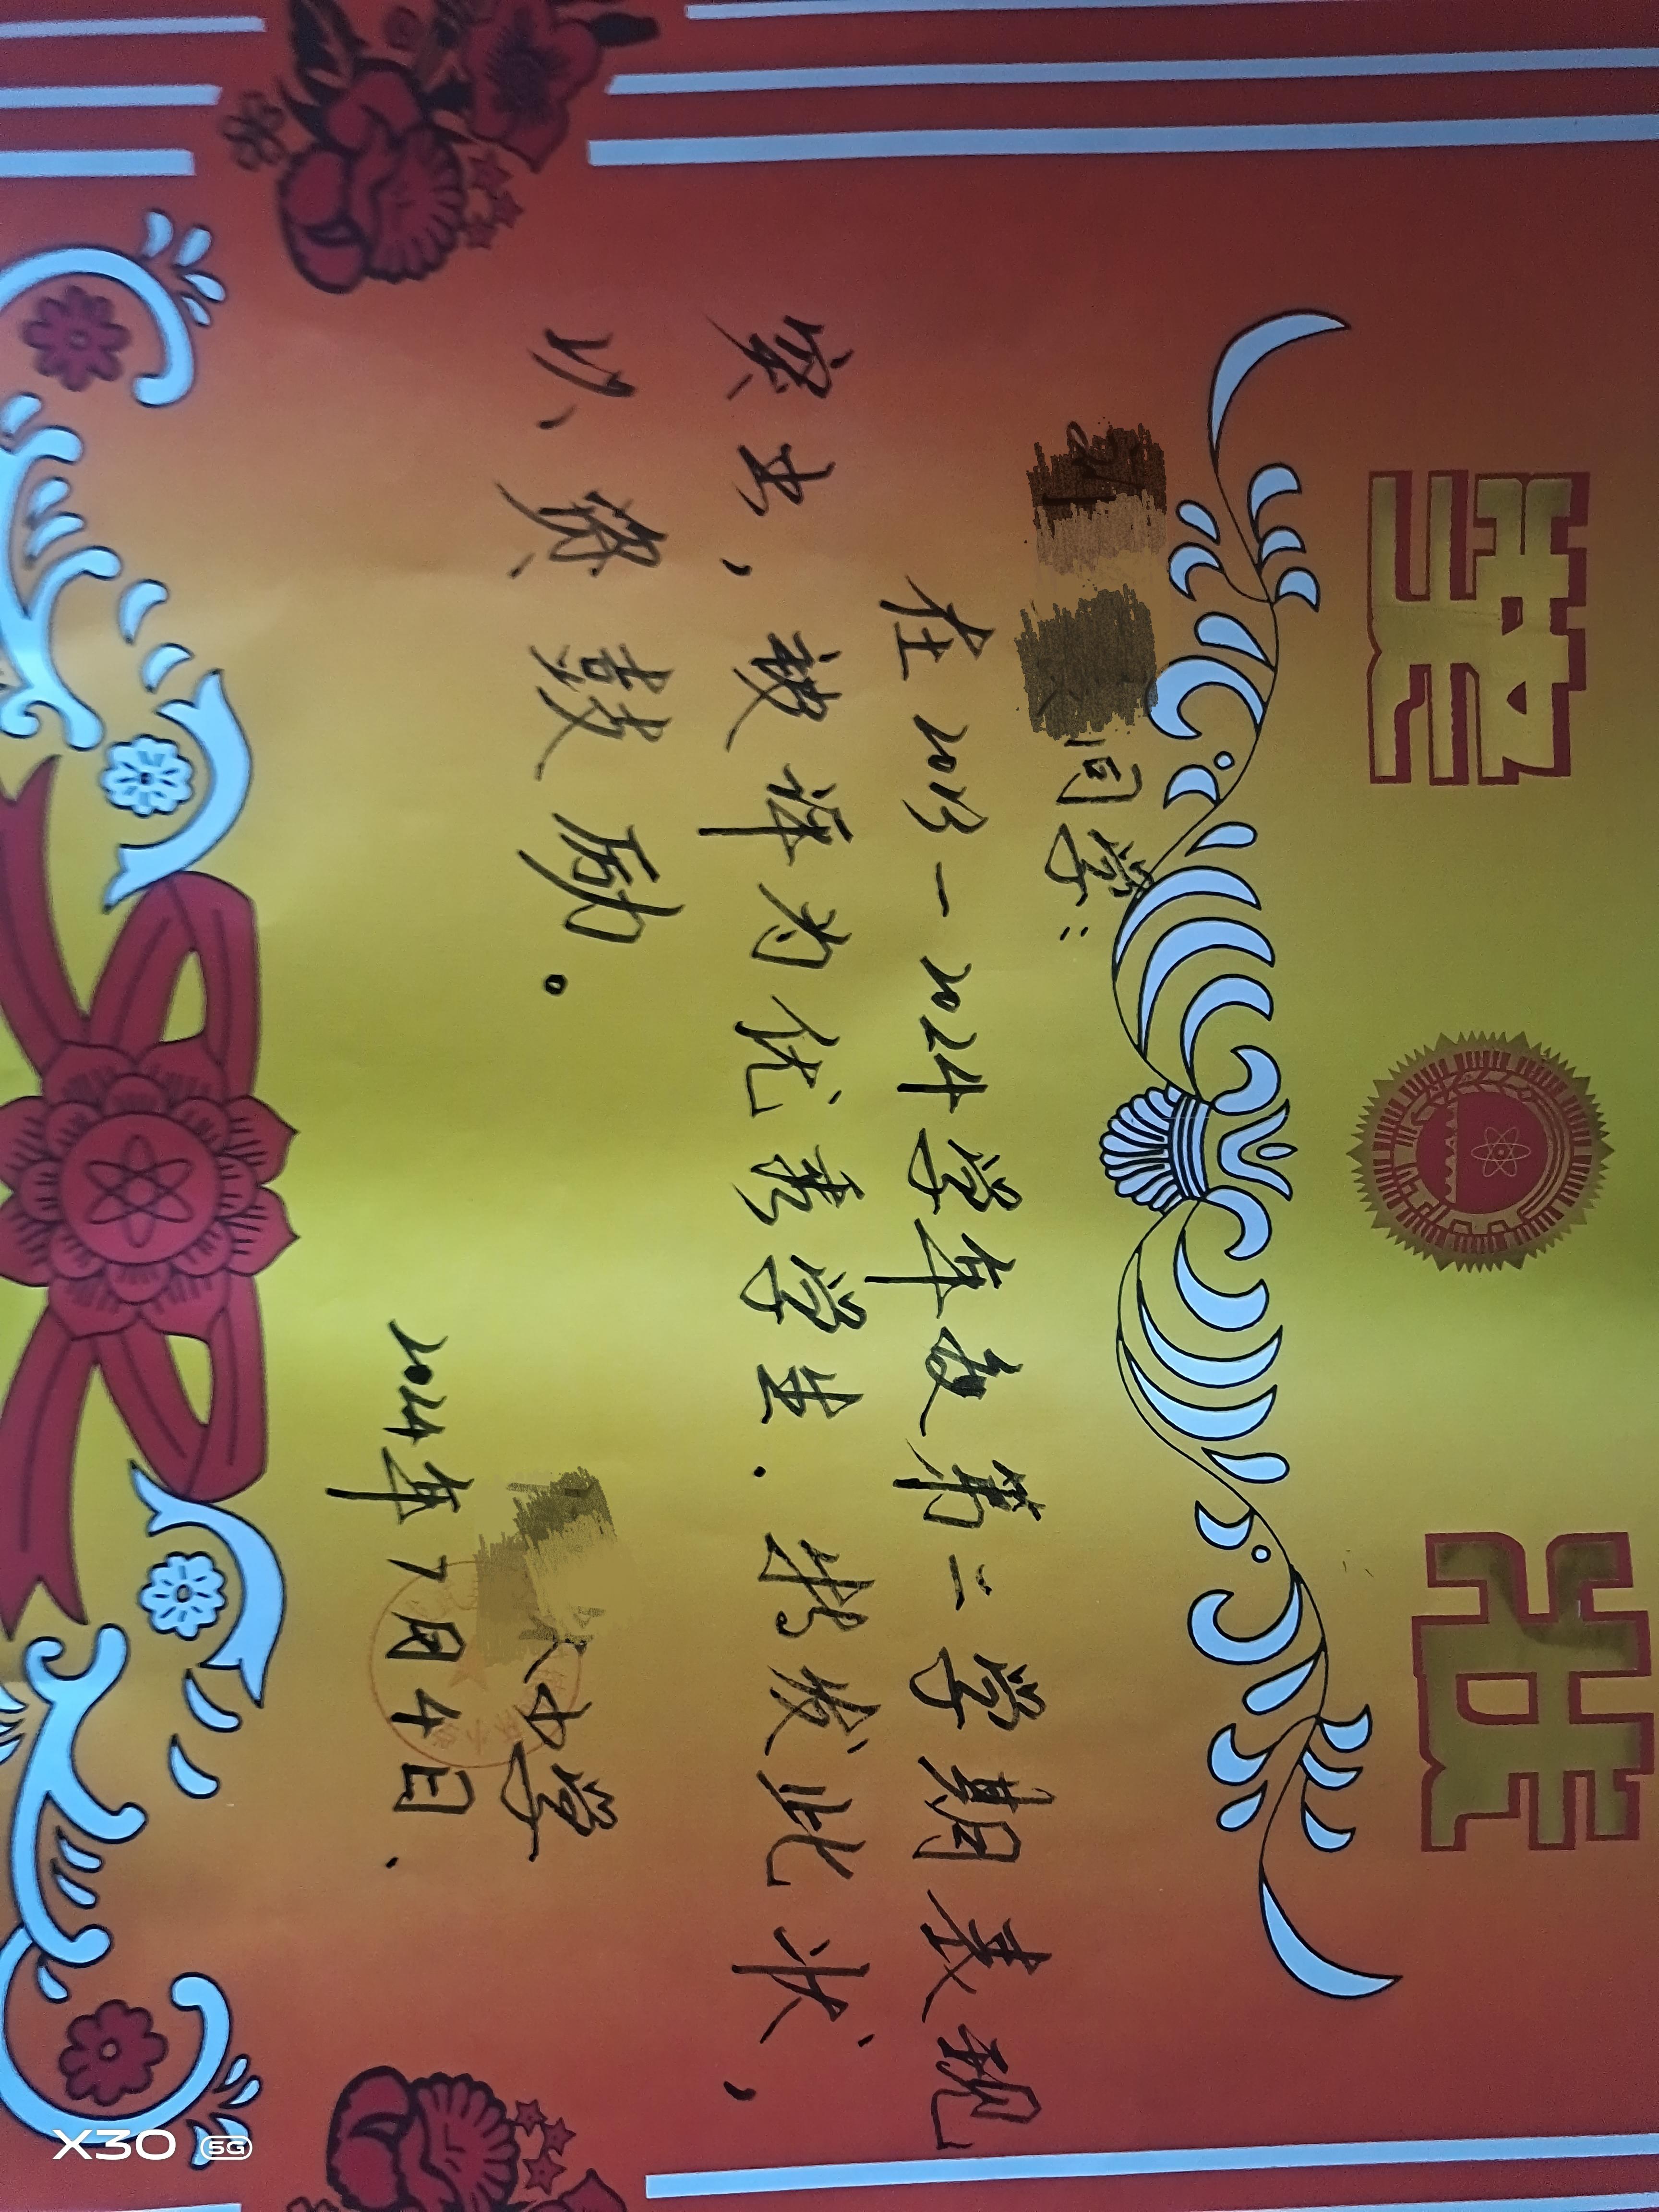 奖 状
同学：
在2023-2024学年度第二学期表现
突出，被评为优秀学生．特发此状，
以资鼓励。
小学
2024年7月4日．
X30 5G